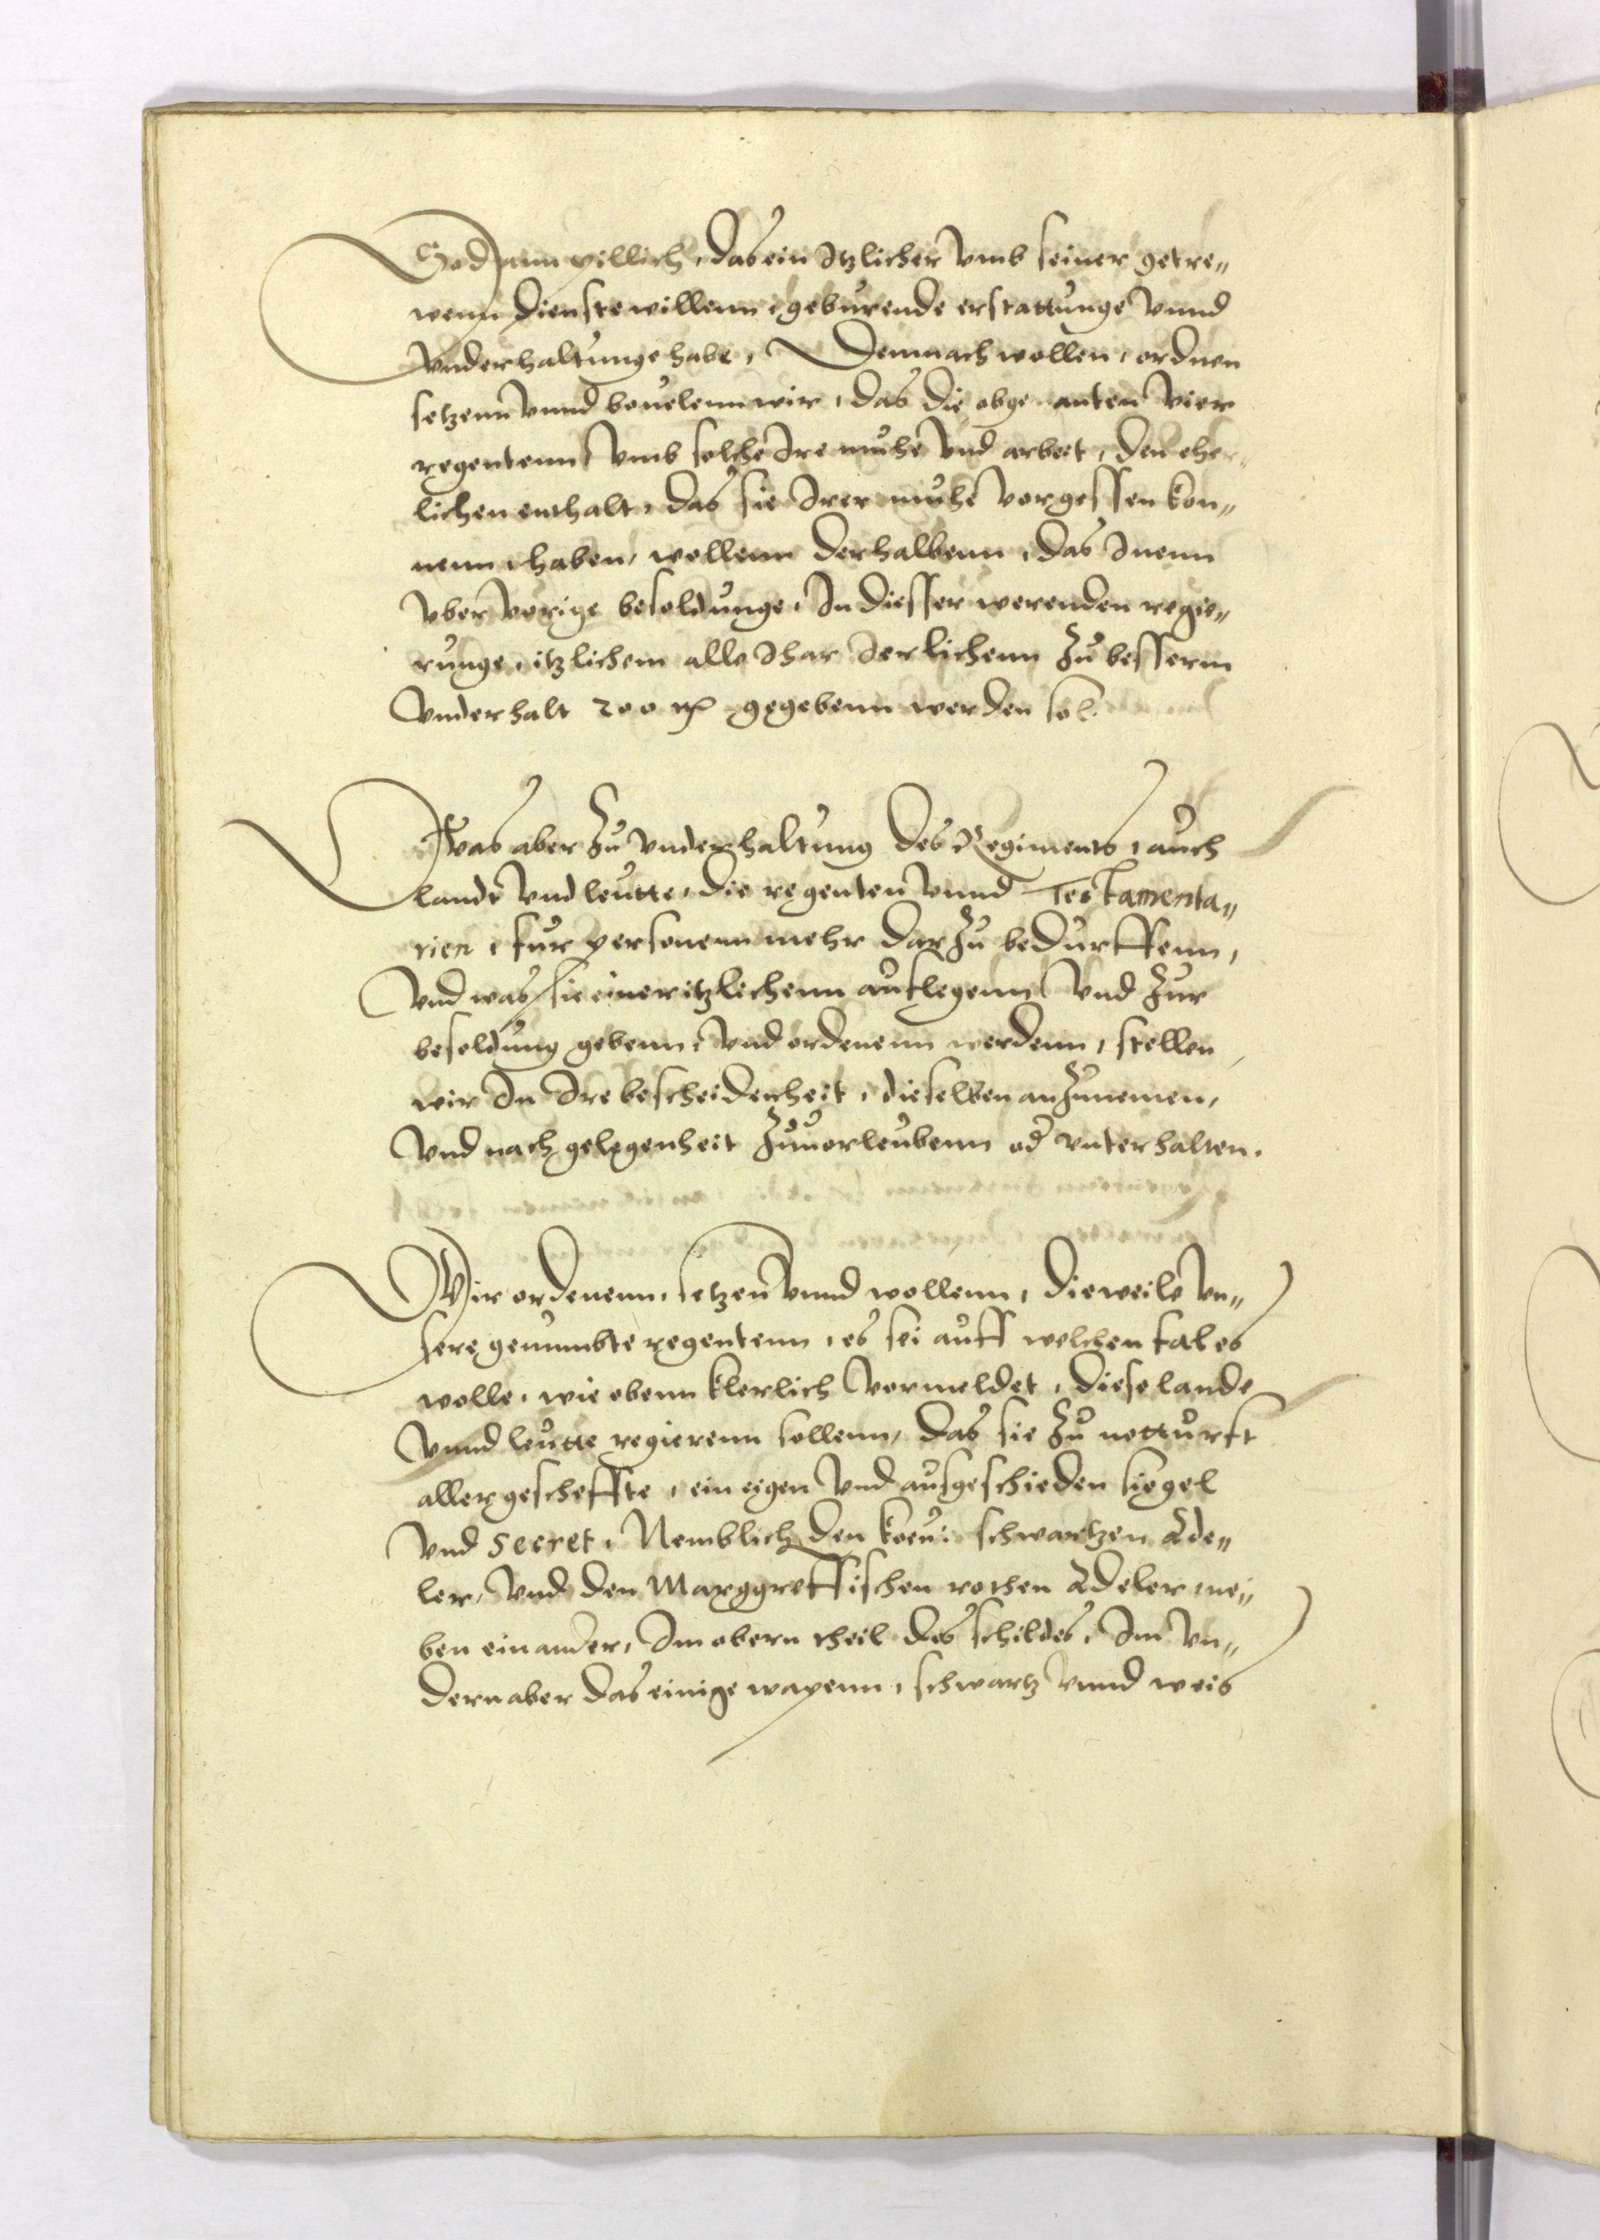 So dann pillich, das ein itzlicher vmb seiner getre„
wenn dienste willenn, geburende erstattunge vnnd
vnderhaltunge habe, Demnach wollen, ordnen
setzenn vnnd beuelenn wir, das die obgenanten vier
regentenn vmb solche Ire muhe vnd arbeit, den eher„
lichen enthalt, das sie Irer muhe vorgessen kon„
nenn, haben, wollenn derhalbenn, das Inenn
vber vorige besoldunge, In diesser werenden regie„
runge, itzlichem alle Jhar Jerlichenn zu besserm
vnderhalt 200 mgegebenn werden sol.
Was aber zu vnderhaltung des Regiments, auch
landt vnd leutte, die regenten vnnd Testamenta„
rien, fur personenn mehr darzu bedurffenn,
vnd was sie einer itzlichenn auflegenn vnd zur
besoldung gebenn, vnd ordenenn werdenn, stellen
wir In Ire bescheidenheit, dieselben anzunemen,
vnd nach gelegenheit zuuorleubenn od vnterhalten.
Wir ordenenn, setzen vnnd wollenn, dieweile vn„
sere genumbte regentenn, es sei auff welchen fal es
wolle, wie obenn klerlich vormeldet, diese lande
vnnd leutte regierenn sollenn, das sie zu notturft
aller gescheffte, ein eigen vnd ausgeschieden siegel
vnd Secret, Nemblich den koeu: schwartzen Ade„
ler, vnd den Marggreffischen rothen Adeler ne„
ben einander, Im obern theil des schildes, Im vn„
dern aber das einige wapenn, schwartz vnnd weis